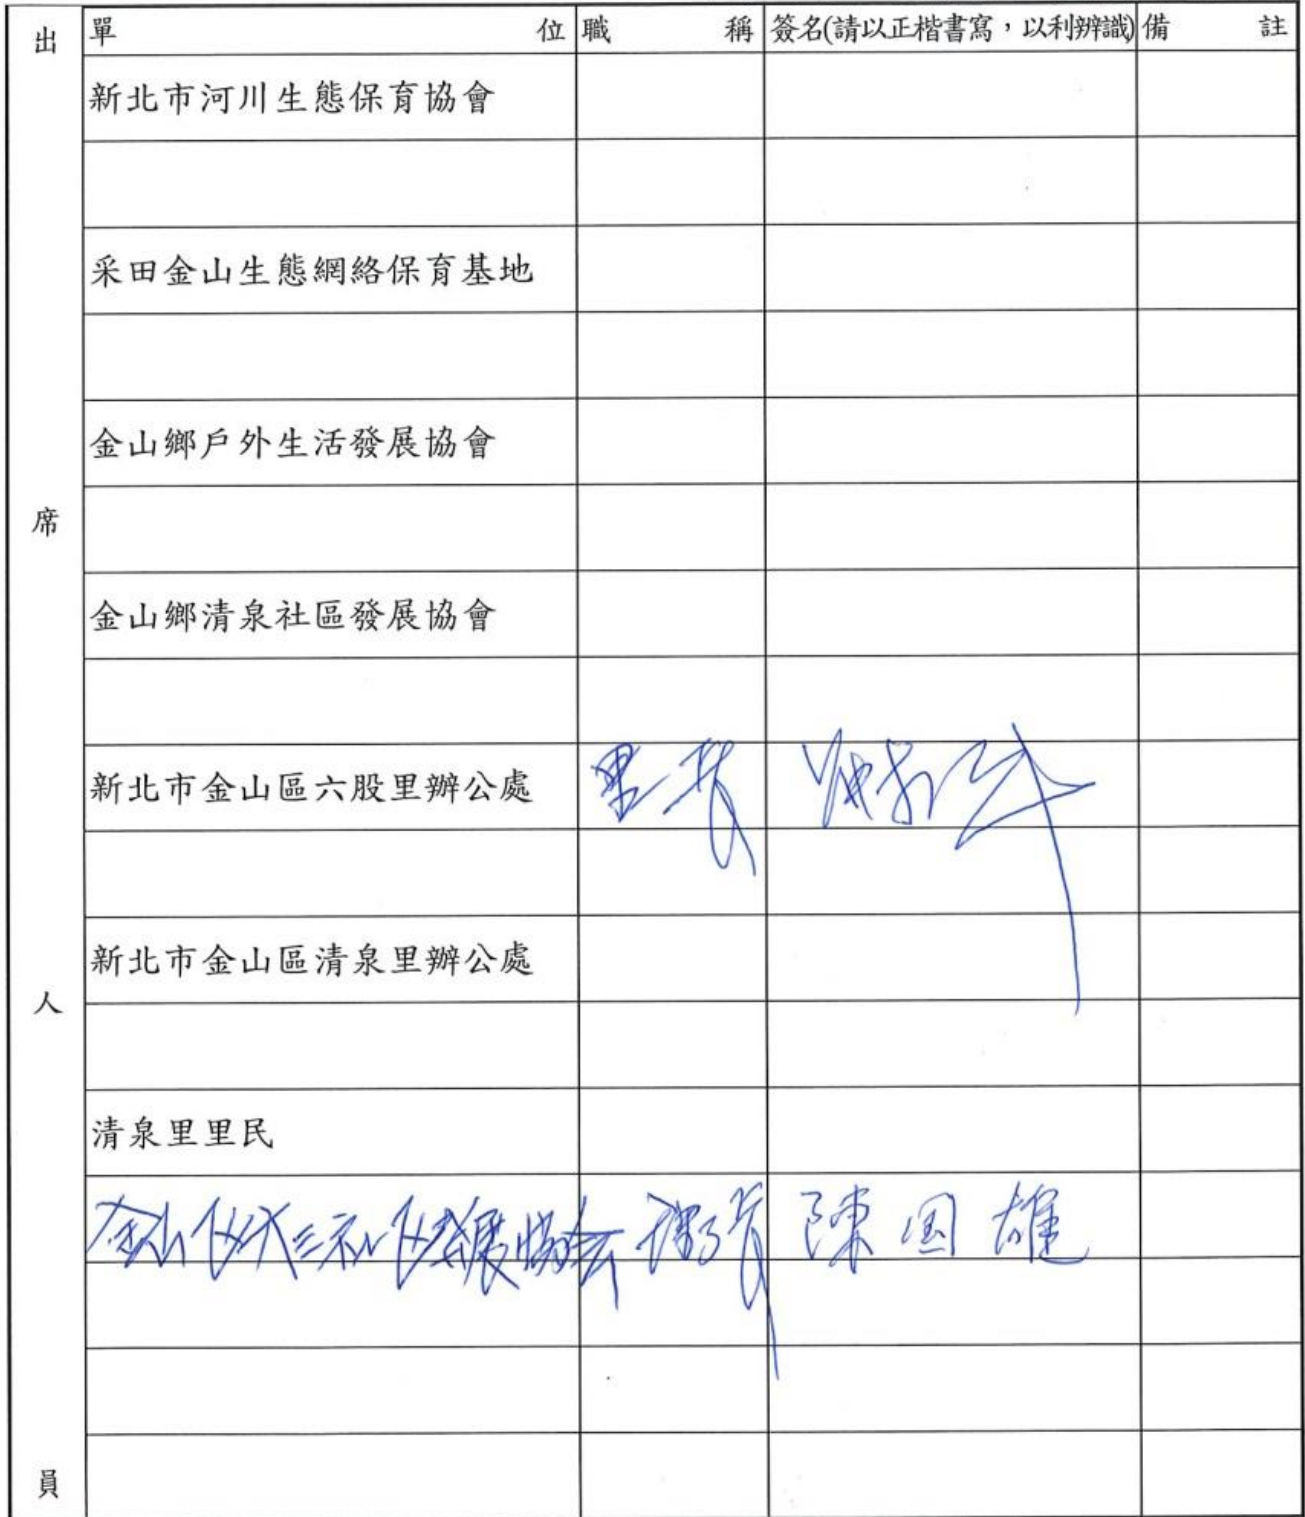 出席人員
單位 職稱 簽名(請以正楷書寫，以利辨識) 備註
新北市河川生態保育協會
采田金山生態網絡保育基地
金山鄉戶外生活發展協會
金山鄉清泉社區發展協會
新北市金山區六股里辦公處 里長
新北市金山區清泉里辦公處
清泉里里民
金山 社 發展協会 陳国雄